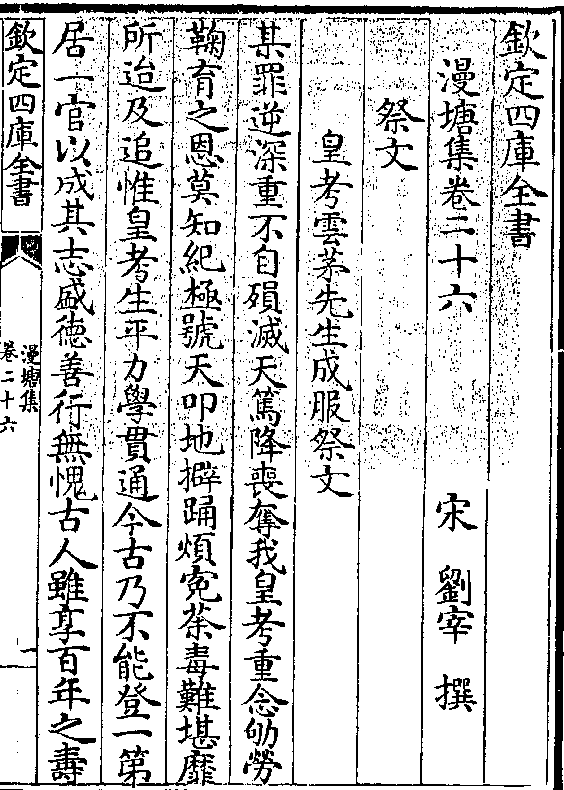 欽定四庫全書
漫塘集卷二十六
宋 劉宰 撰
祭文
皇考雲茅先生成服祭文
某罪逆深重不自殞滅天篤降喪奪我皇考重念劬勞
鞠育之恩莫知紀極號天叩地擗踊煩寃荼毒難堪靡
所迨及追惟皇考生平力學貫通今古乃不能登一第
居一官以成其志盛徳善行無愧古人雖享百年之壽
欽定四庫全書
漫塘集
卷二十六
一